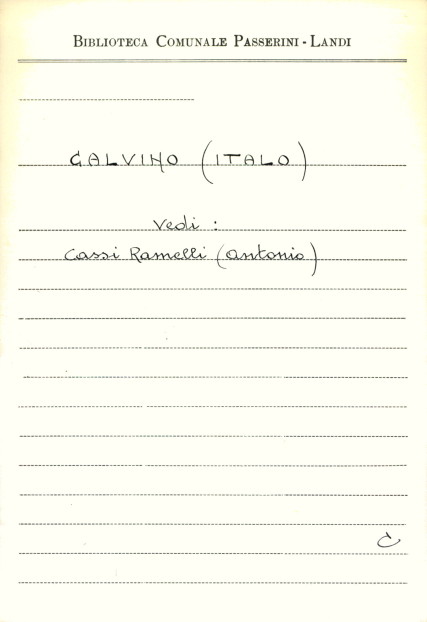 BIBLIOTECA COMUNALE PASSERINI - LANDI
CALVINO (ITALO)
Vedi :
Cassi Ramelli (Antonio)
C